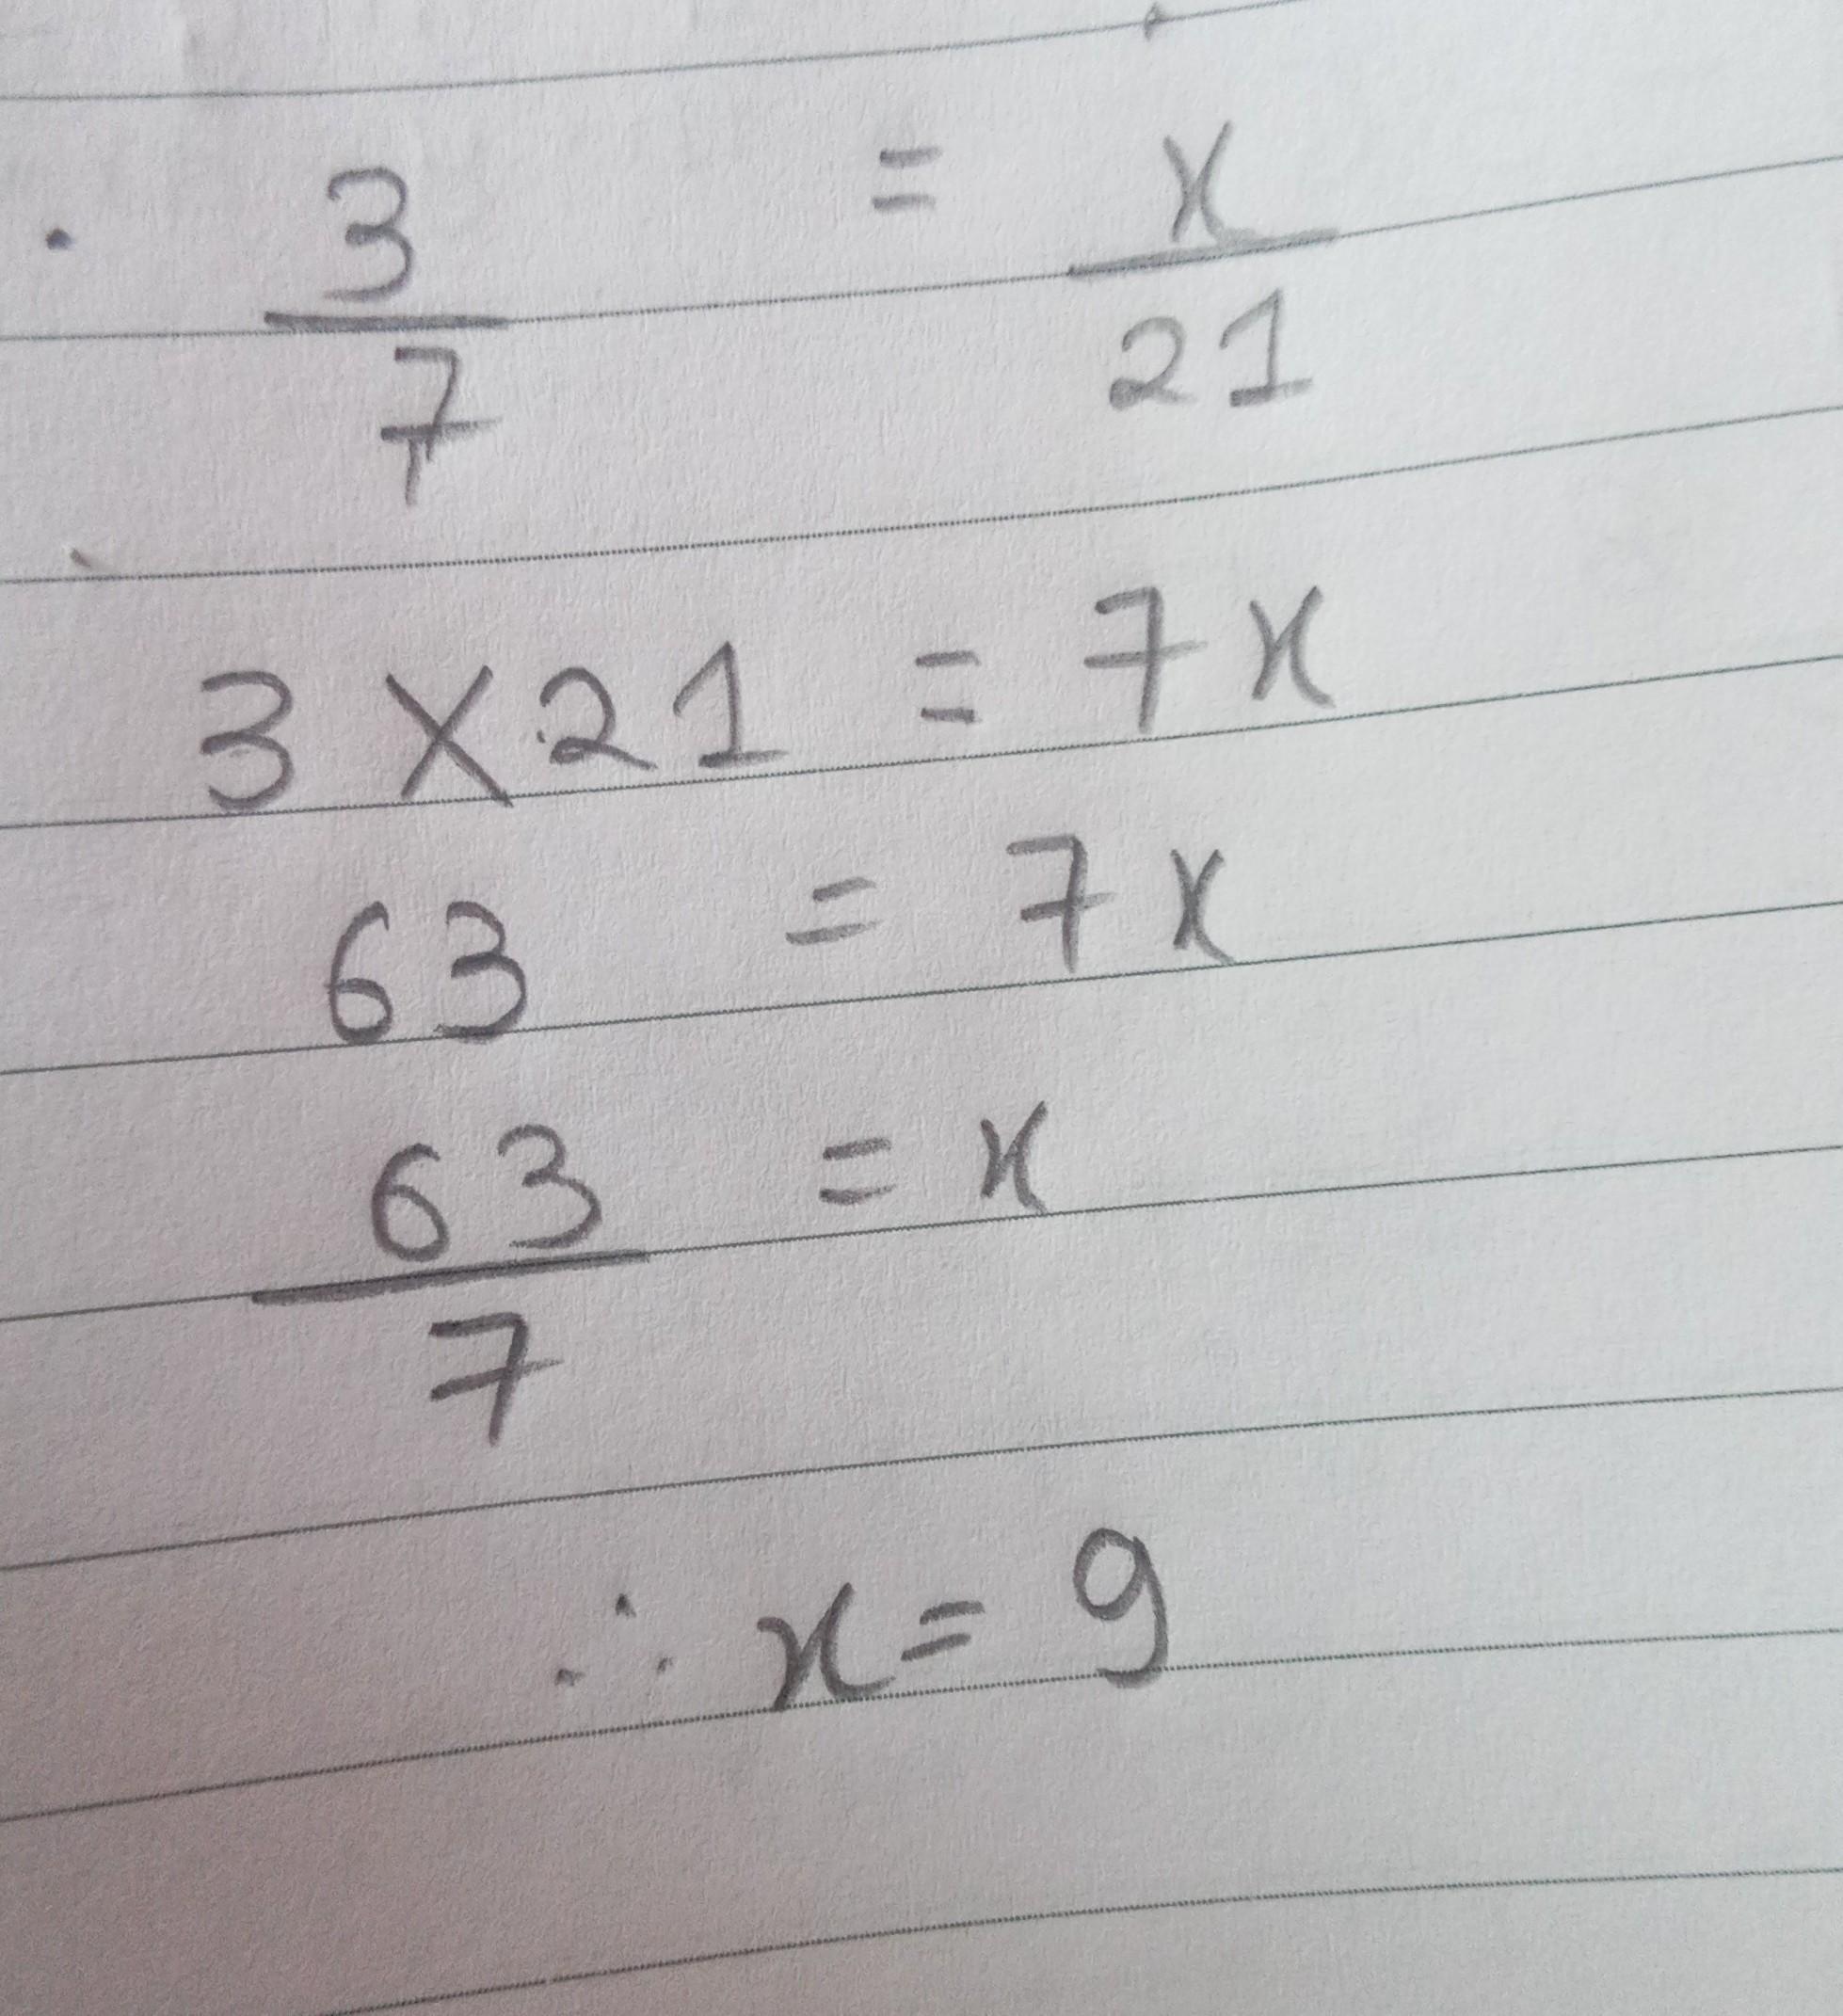 3/7 = x/21
3 × 21 = 7x
63 = 7x
63/7 = x
∴ x = 9